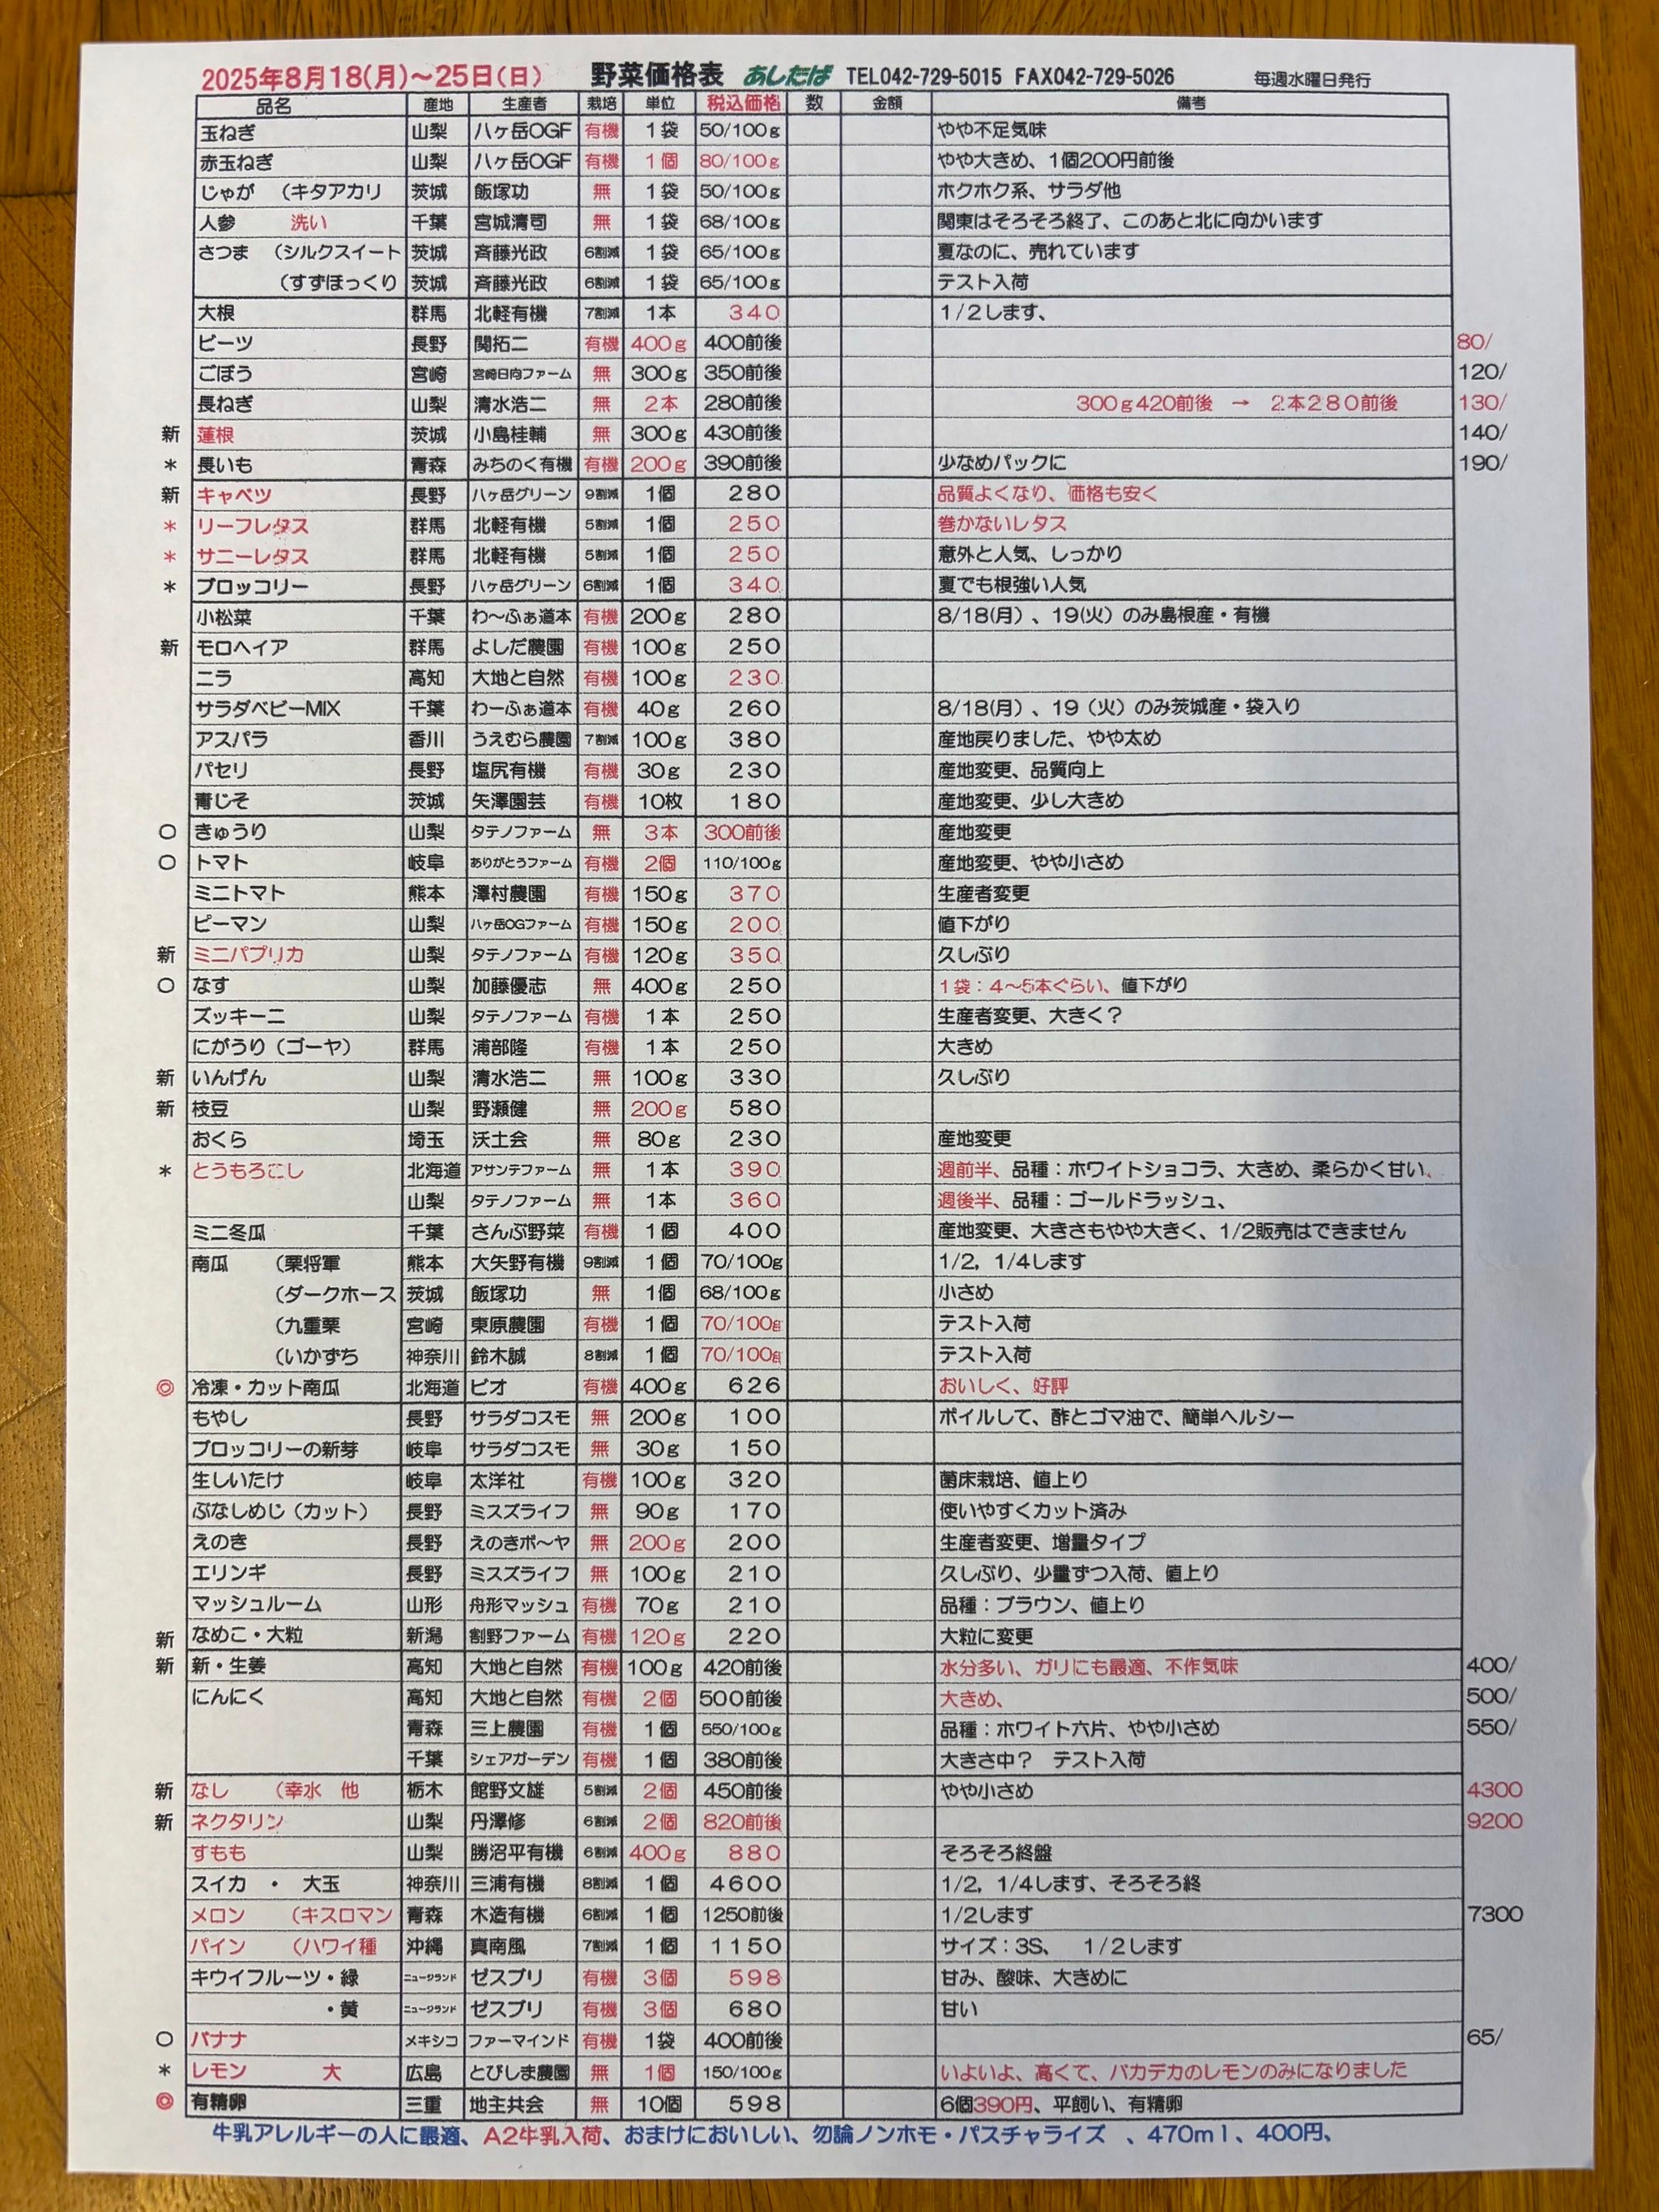 2025年8月18(月)～25日(日) 野菜価格表 あしたば TEL042-729-5015 FAX042-729-5026 毎週水曜日発行
品名 産地 生産者 栽培 単位 税込価格 数 金額 備考
玉ねぎ 山梨 八ヶ岳OGF 有機 1袋 50/100g やや不足気味
赤玉ねぎ 山梨 八ヶ岳OGF 有機 1個 80/100g やや大きめ、1個200円前後
じゃが （キタアカリ 茨城 飯塚功 無 1袋 50/100g ホクホク系、サラダ他
人参 洗い 千葉 宮城清司 無 1袋 68/100g 関東はそろそろ終了、このあと北に向かいます
さつま （シルクスイート 茨城 斉藤光政 6割減 1袋 65/100g 夏なのに、売れています
（すずほっくり 茨城 斉藤光政 6割減 1袋 65/100g テスト入荷
大根 群馬 北軽有機 7割減 1本 340 1/2します、
ビーツ 長野 関拓二 有機 400g 400前後 80/
ごぼう 宮崎 宮崎日向ファーム 無 300g 350前後 120/
長ねぎ 山梨 清水浩二 無 2本 280前後 300g420前後 → 2本280前後 130/
新 蓮根 茨城 小島桂輔 無 300g 430前後 140/
* 長いも 青森 みちのく有機 有機 200g 390前後 少なめパックに 190/
新 キャベツ 長野 八ヶ岳グリーン 9割減 1個 280 品質よくなり、価格も安く
* リーフレタス 群馬 北軽有機 5割減 1個 250 巻かないレタス
* サニーレタス 群馬 北軽有機 5割減 1個 250 意外と人気、しっかり
* ブロッコリー 長野 八ヶ岳グリーン 6割減 1個 340 夏でも根強い人気
小松菜 千葉 わ～ふぁ道本 有機 200g 280 8/18(月)、19(火)のみ島根産・有機
新 モロヘイア 群馬 よしだ農園 有機 100g 250
ニラ 高知 大地と自然 有機 100g 230
サラダベビーMIX 千葉 わーふぁ道本 有機 40g 260 8/18(月)、19（火）のみ茨城産・袋入り
アスパラ 香川 うえむら農園 7割減 100g 380 産地戻りました、やや太め
パセリ 長野 塩尻有機 有機 30g 230 産地変更、品質向上
青じそ 茨城 矢澤園芸 有機 10枚 180 産地変更、少し大きめ
○ きゅうり 山梨 タテノファーム 無 3本 300前後 産地変更
○ トマト 岐阜 ありがとうファーム 有機 2個 110/100g 産地変更、やや小さめ
ミニトマト 熊本 澤村農園 有機 150g 370 生産者変更
ピーマン 山梨 八ヶ岳OGファーム 有機 150g 200 値下がり
新 ミニパプリカ 山梨 タテノファーム 有機 120g 350 久しぶり
○ なす 山梨 加藤優志 無 400g 250 1袋：4～5本ぐらい、値下がり
ズッキーニ 山梨 タテノファーム 有機 1本 250 生産者変更、大きく？
にがうり（ゴーヤ） 群馬 浦部隆 有機 1本 250 大きめ
新 いんげん 山梨 清水浩二 無 100g 330 久しぶり
新 枝豆 山梨 野瀬健 無 200g 580
おくら 埼玉 沃土会 無 80g 230 産地変更
* とうもろこし 北海道 アサンテファーム 無 1本 390 週前半、品種：ホワイトショコラ、大きめ、柔らかく甘い、
山梨 タテノファーム 無 1本 360 週後半、品種：ゴールドラッシュ、
ミニ冬瓜 千葉 さんぶ野菜 有機 1個 400 産地変更、大きさもやや大きく、1/2販売はできません
南瓜 （栗将軍 熊本 大矢野有機 9割減 1個 70/100g 1/2，1/4します
（ダークホース 茨城 飯塚功 無 1個 68/100g 小さめ
（九重栗 宮崎 東原農園 有機 1個 70/100g テスト入荷
（いかずち 神奈川 鈴木誠 8割減 1個 70/100g テスト入荷
◎ 冷凍・カット南瓜 北海道 ビオ 有機 400g 626 おいしく、好評
もやし 長野 サラダコスモ 無 200g 100 ボイルして、酢とゴマ油で、簡単ヘルシー
ブロッコリーの新芽 岐阜 サラダコスモ 無 30g 150
生しいたけ 岐阜 太洋社 有機 100g 320 菌床栽培、値上り
ぶなしめじ（カット） 長野 ミスズライフ 無 90g 170 使いやすくカット済み
えのき 長野 えのきボ～ヤ 無 200g 200 生産者変更、増量タイプ
エリンギ 長野 ミスズライフ 無 100g 210 久しぶり、少量ずつ入荷、値上り
マッシュルーム 山形 舟形マッシュ 有機 70g 210 品種：ブラウン、値上り
新 なめこ・大粒 新潟 割野ファーム 有機 120g 220 大粒に変更
新 新・生姜 高知 大地と自然 有機 100g 420前後 水分多い、ガリにも最適、不作気味 400/
にんにく 高知 大地と自然 有機 2個 500前後 大きめ、 500/
青森 三上農園 有機 1個 550/100g 品種：ホワイト六片、やや小さめ 550/
千葉 シェアガーデン 有機 1個 380前後 大きさ中？ テスト入荷
新 なし （幸水 他 栃木 館野文雄 5割減 2個 450前後 やや小さめ 4300
新 ネクタリン 山梨 丹澤修 6割減 2個 820前後 9200
すもも 山梨 勝沼平有機 6割減 400g 880 そろそろ終盤
スイカ ・ 大玉 神奈川 三浦有機 8割減 1個 4600 1/2，1/4します、そろそろ終
メロン （キスロマン 青森 木造有機 6割減 1個 1250前後 1/2します 7300
パイン （ハワイ種 沖縄 真南風 7割減 1個 1150 サイズ：3S、 1/2します
キウイフルーツ・緑 ニュージランド ゼスプリ 有機 3個 598 甘み、酸味、大きめに
・黄 ニュージランド ゼスプリ 有機 3個 680 甘い
○ バナナ メキシコ ファーマインド 有機 1袋 400前後 65/
* レモン 大 広島 とびしま農園 無 1個 150/100g いよいよ、高くて、バカデカのレモンのみになりました
◎ 有精卵 三重 地主共会 無 10個 598 6個390円、平飼い、有精卵
牛乳アレルギーの人に最適、A2牛乳入荷、おまけにおいしい、勿論ノンホモ・パスチャライズ 、470ml、400円、